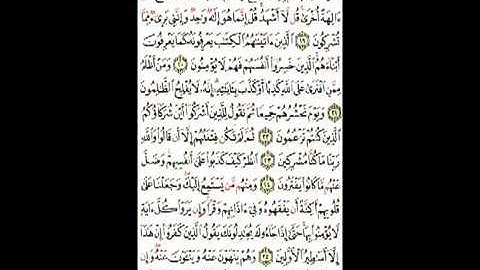 ءَالِهَةً أُخْرَىٰ قُل لَّآ أَشْهَدُ قُلْ إِنَّمَا هُوَ إِلَٰهٌ وَٰحِدٌ وَإِنَّنِى بَرِىٓءٌ مِّمَّا
تُشْرِكُونَ ١٩ ٱلَّذِينَ ءَاتَيْنَٰهُمُ ٱلْكِتَٰبَ يَعْرِفُونَهُۥ كَمَا يَعْرِفُونَ
أَبْنَآءَهُمُ ٱلَّذِينَ خَسِرُوٓا۟ أَنفُسَهُمْ فَهُمْ لَا يُؤْمِنُونَ ٢٠ وَمَنْ أَظْلَمُ
مِمَّنِ ٱفْتَرَىٰ عَلَى ٱللَّهِ كَذِبًا أَوْ كَذَّبَ بِـَٔايَٰتِهِۦٓ إِنَّهُۥ لَا يُفْلِحُ ٱلظَّٰلِمُونَ
٢١ وَيَوْمَ نَحْشُرُهُمْ جَمِيعًا ثُمَّ نَقُولُ لِلَّذِينَ أَشْرَكُوٓا۟ أَيْنَ شُرَكَآؤُكُمُ
ٱلَّذِينَ كُنتُمْ تَزْعُمُونَ ٢٢ ثُمَّ لَمْ تَكُن فِتْنَتُهُمْ إِلَّآ أَن قَالُوا۟ وَٱللَّهِ
رَبِّنَا مَا كُنَّا مُشْرِكِينَ ٢٣ ٱنظُرْ كَيْفَ كَذَبُوا۟ عَلَىٰٓ أَنفُسِهِمْ وَضَلَّ
عَنْهُم مَّا كَانُوا۟ يَفْتَرُونَ ٢٤ وَمِنْهُم مَّن يَسْتَمِعُ إِلَيْكَ وَجَعَلْنَا عَلَىٰ
قُلُوبِهِمْ أَكِنَّةً أَن يَفْقَهُوهُ وَفِىٓ ءَاذَانِهِمْ وَقْرًا وَإِن يَرَوْا۟ كُلَّ ءَايَةٍ
لَّا يُؤْمِنُوا۟ بِهَا حَتَّىٰٓ إِذَا جَآءُوكَ يُجَٰدِلُونَكَ يَقُولُ ٱلَّذِينَ كَفَرُوٓا۟ إِنْ هَٰذَآ
إِلَّآ أَسَٰطِيرُ ٱلْأَوَّلِينَ ٢٥ وَهُمْ يَنْهَوْنَ عَنْهُ وَيَنْـَٔوْنَ عَنْهُ وَإِن